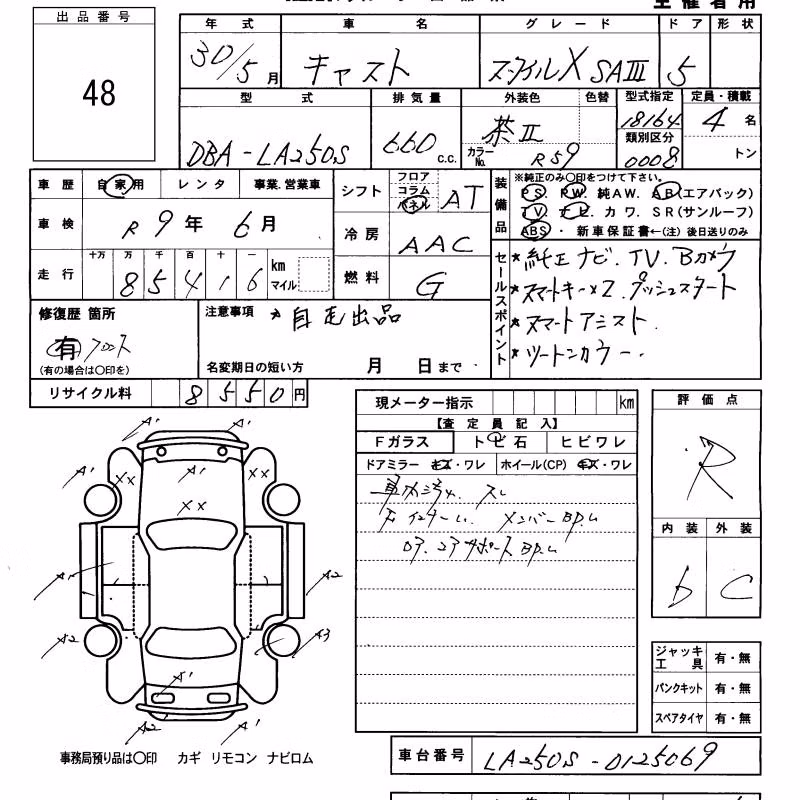 主催者用
出品番号
48
年式 車名 グレード ドア 形状
30/5月 キャスト スタイルX SAIII 5
型式 排気量 外装色 色替 型式指定 定員・積載
DBA-LA250S 660 c.c. 茶II 18164 4名
カラーNo. R59 類別区分 0008 トン
車歴 自家用 レンタ 事業.営業車
車検 R9年6月
走行 十万 万 千 百 十 一
85416 km マイル
シフト フロア コラム パネル AT
冷房 AAC
燃料 G
装備品 ※純正のみ〇印をつけて下さい。
PS. PW. 純AW. AB(エアバック)
TV. ナビ. カワ. SR(サンルーフ)
ABS ・ 新車保証書←(注)後日送りのみ
セールスポイント
*純正ナビ.TV.Bカメラ
*スマートキー×2.プッシュスタート
*スマートアシスト.
*ツートンカラー.
修復歴 箇所
有 フロント
(有の場合は〇印を)
注意事項 *自宅出品
名変期日の短い方 月 日まで
リサイクル料 8550円
現メーター指示 km
【査定員記入】
Fガラス トビ石 ヒビワレ
ドアミラー キズ・ワレ ホイール(CP) キズ・ワレ
車内汚れ. スレ
メンバーBP.レ
サポートBP.レ
評価点
R
内装 外装
b C
A1 A1
A1 XX A1 XX A1
XX
A1 A2
A2 A3
A1
A2 A1
ジャッキ工具 有・無
パンクキット 有・無
スペアタイヤ 有・無
事務局預り品は〇印 カギ リモコン ナビロム
車台番号 LA250S-0125069